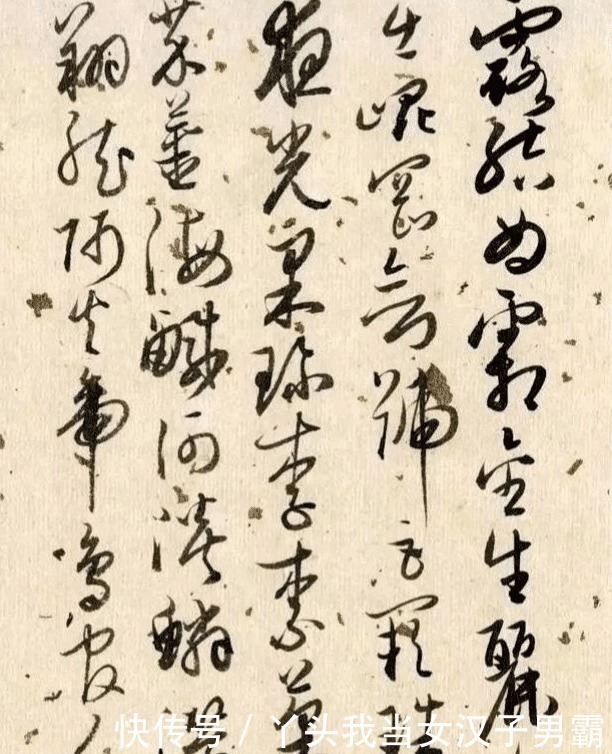 露結為霜金生麗
出崐岡劍號巨闕珠
夜光果珍李柰菜
芥薑海鹹河淡鱗潛
翔龍師火帝鳥官人
快传号 / 丫头我当女汉子男霸